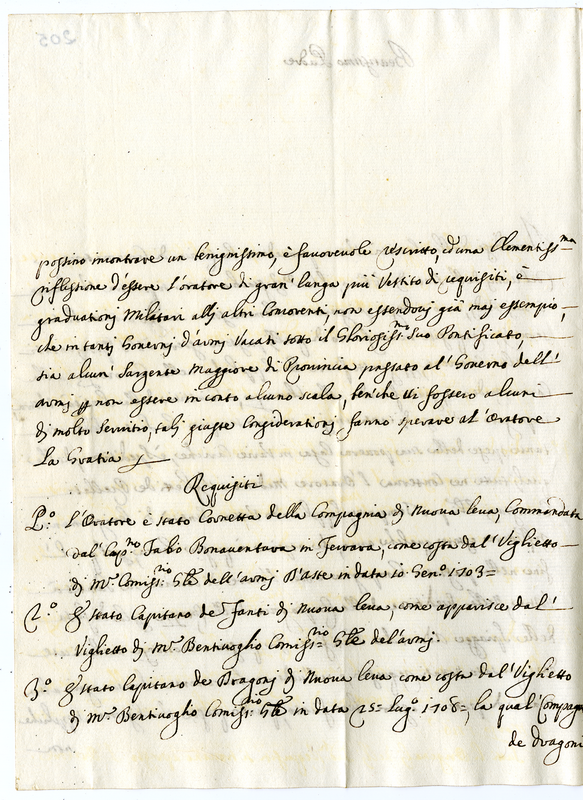 205
Beatissimo Padre
possino incontrare un benignissimo, è favorevole rescritto, ed'una Clementiss:ma
riflessione d'essere l'oratore di gran' lunga più Vestito di requisiti, è
graduationj Militari allj altri Concorenti, non essendocj già maj essempio,
che in tantj Governj d'armj Vacati sotto il Gloriosiss:mo Suo Pontificato,
sia alcun' Sargente Maggiore di Provincia passato al' Governo dell'
armj p non essere in conto alcuno scala, ben'che Vi fossero alcuni
dj molto Servitio, talj giuste Considerationj fanno sperare al' Oratore
La Gratia
Requisiti
P.o: L'Oratore è stato Cornetta della Compagnia dj Nuova leva, Commandata
dal' Cap.no Fabio Bonaventura in Ferrara, come costa dal' Viglietto
dj M.r Comiss:rio Gle dell'armj D'Aste in data 10 Gen.o 1703=
2.o È stato Capitano de' Fanti dj Nuova leva, come apparisce dal'
Viglietto dj M.r Bentivoglio Comiss:rio Gle del'armj.
3.o È stato Capitano de Dragonj dj Nuova leva come costa dal' Viglietto
dj M.r Bentivoglio Comiss:rio Gle in data 25= Lug.o 1708=, la qual' Compagn
de dragoni